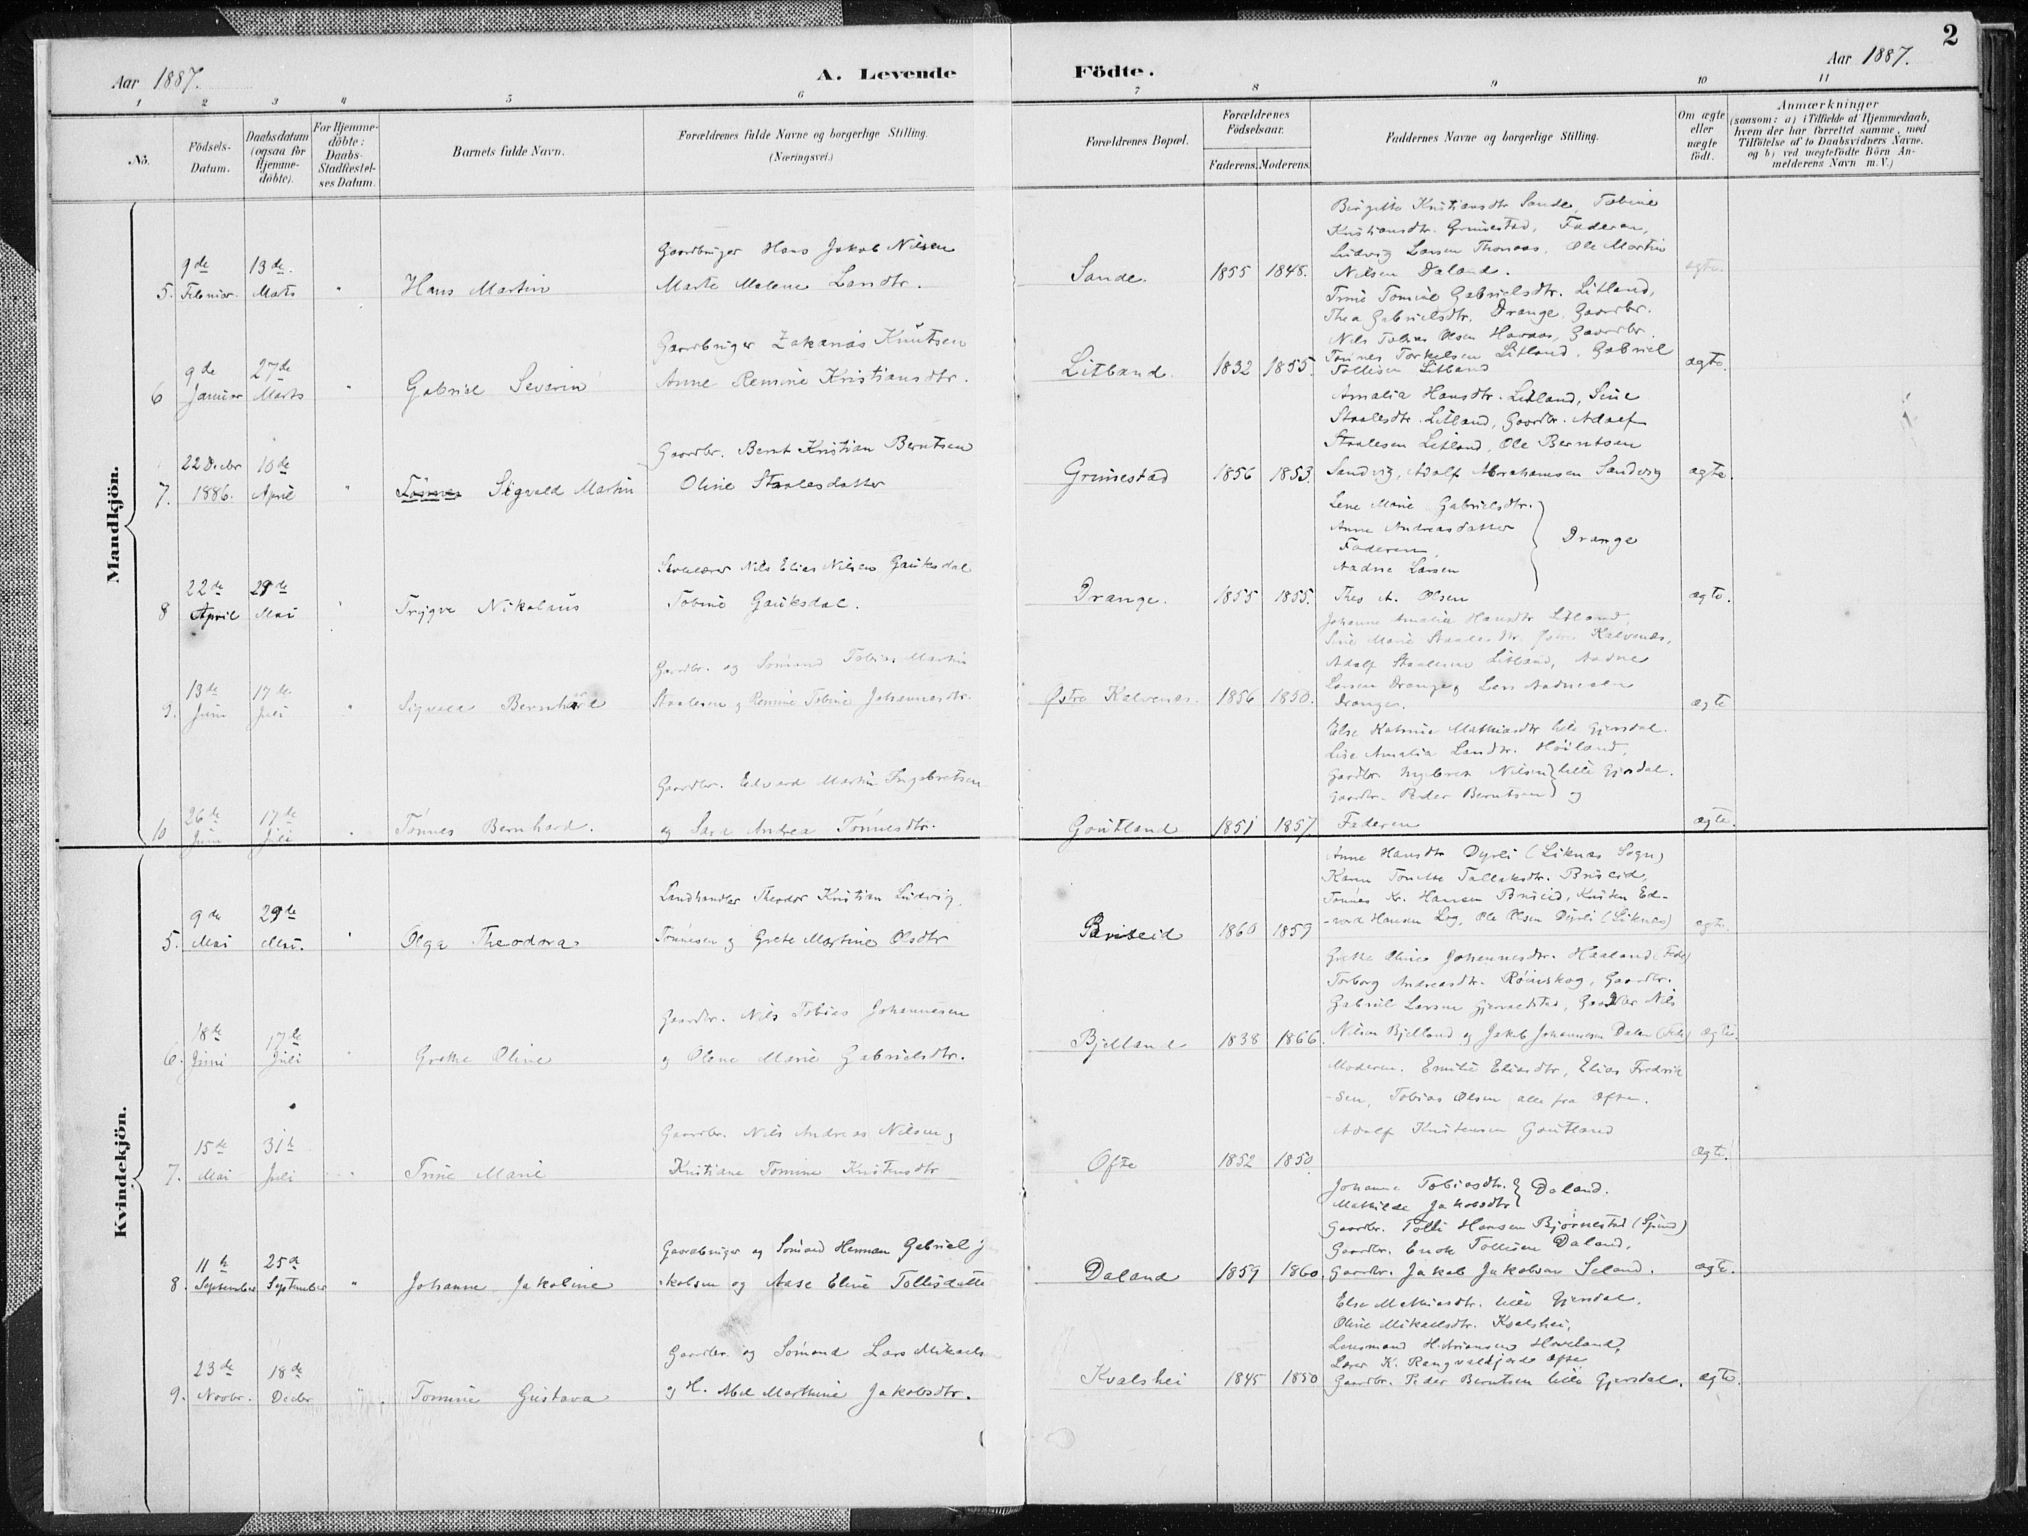 2
Aar 1887.
A. Levende
Födte.
Aar 1887.
1 2 3 4 5 6 7 8 9 10 11
No.
Födsels-
Datum.
Daabsdatum
(ogsaa for
Hjemme-
döbte).
For Hjemme-
döbte:
Daabs-
Stadfæstel-
ses Datum.
Barnets fulde Navn.
Forældrenes fulde Navne og borgerlige Stilling.
(Næringsvei.)
Forældrenes Bopæl.
Forældrenes
Födselsaar.
Faderens. Moderens.
Faddernes Navne og borgerlige Stilling.
Om ægte
eller
uægte
født.
Anmærkninger
(saasom: a) i Tilfælde af Hjemmedaab,
hvem der har forrettet samme, med
Tilföielse af to Daabsvidners Navne.
og b) ved uægtefödte Börn An-
melderens Navn m.V.)
Mandkjön.
5. 9de Februar. 13de. Marts " Hans Martin
Gaardbruger Hans Jakob Nilsen
Marte Malene Larsdtr.
Sande. 1855 1848.
Birgitte Kristiansdtr Sande, Tobine
Kristiansdtr. Grimestad, Faderen,
Ludvig Larsen Thonaas, Ole Martin
Nilsen Daland.
ægte.
6 9de Januar 27de Marts " Gabriel Severin
Gaardbruger Zakarias Knutsen
Anne Remine Kristiansdtr.
Litland. 1832 1855.
Trine Tomine Gabrielsdtr. Litland,
Thea Gabrielsdtr. Drange, Gaardbr.
Nils Tobias Olsen Haraas, Gaardbr.
Tønnes Torkelsen Litland, Gabriel
Tollisen Litland
ægte.
7. 22 Decbr 1886. 10de April " Tønnes Sigvald Martin
Gaardbr. Bernt Kristian Berntsen
Oline Staalesdatter
Grimestad 1856 1853.
Amalia Hansdtr. Litland, Sine
Staalesdtr. Litland, Gaardbr. Adolf
Staalesen Litland, Ole Berntsen
Sandvig, Adolf Abrahamsen Sandvig
ægte.
8 22de April 29de Mai " Trygve Nikolaus
Skolelærer Nils Elias Nilsen Gauksdal
Tobine Gauksdal.
Drange. 1855 1855.
Lene Marie Gabrielsdtr.
Anne Andreasdatter
Faderen,
Aadne Larsen
Drange
Theo A. Olsen
ægte.
9. 13de Juni 17de Juli " Sigvald Bernhard
Gaardbr. og Sømand Tobias Martin
Staalesen og Remine Tobine Johannesdtr.
Østre Kalvenes. 1856 1850.
Johanne Amalia Hansdtr Litland,
Sine Marie Staalesdtr. Østre Kalvenæs,
Adolf Staalesen Litland, Aadne
Larsen Drange og Lars Aadnesen
Drange.
ægte
10 26de Juni 17de Juli " Tønnes Bernhard.
Gaardbr. Edvard Martin Ingebretsen
og Sara Andrea Tønnesdtr.
Goutland 1851 1857.
Else Katrine Mathiasdtr lille Gjersdal.
Lise Amalia Larsdtr. Høiland,
Gaardbr. Ingebret Nilsen } lille Gjersdal.
Gaardbr. Peder Berntsen } og
Faderen
ægte.
Kvindekjön.
5. 9de Mai 29de Mai. " Olga Theodora
Landhandler Theodor Kristian Ludvig
Tønnesen og Grete Martine Olsdtr
Briseid 1860 1859
Anne Hansdtr Dyrli (Liknes Sogn)
Karen Tonette Tallaksdtr. Briseid,
Tønnes Kr. Hansen Briseid, Kristen Ed-
-vard Hansen Log, Ole Olsen Dyrli (Liknes)
ægte.
6. 18de Juni 17de Juli " Grethe Oline
Gaardbr. Nils Tobias Johannesen
og Olene Marie Gabrielsdtr.
Bjelland 1838 1866.
Grethe Oline Johannesdtr. Haaland (Fede)
Torborg Andreasdtr. Røinskog, Gaardbr.
Gabriel Larsen Gjervoldstad, Gaardbr Nils
Nilsen Bjelland og Jakob Johannesen Dalen (Fede)
ægte.
7. 15de Mai 31te Juli " Trine Marie
Gaardbr. Nils Andreas Nilsen og
Kristiane Tomine Kristensdtr
Ofte 1852 1850.
Moderen. Emilie Eliasdtr, Elias Fredrik
-sen, Tobias Olsen alle fra Ofte.
Adolf Kristensen Goutland
Ægte.
8. 11te September 25de September " Johanne Jakobine
Gaardbruger og Sømand Herman Gabriel J
-kobsen og Aase Eline Tollisdatte
Daland 1859 1860.
Johanne Tobiasdtr.
Mathilde Jakobsdtr } Daland.
Gaardbr. Tolli Hansen Bjørnestad (Spind)
Gaardbr. Enok Tollisen Daland.
Gaardbr. Jakob Jakobsen Seland.
ægte.
9. 23de Novbr. 18de Decbr " Tomine Gustava
Gaardbr og Sømand Lars Mikaels
og H. Abel Marthine Jakobsdtr.
Kvalshei 1845 1850
Else Mathiasdtr. lille Gjersdal,
Oline Mikaelsdtr. Kvalshei,
Lensmand H. Ariansen Høveland,
Lærer K. Rangvaldjorde Ofte
Gaardbr. Peder Berntsen lille Gjersdal.
ægte.